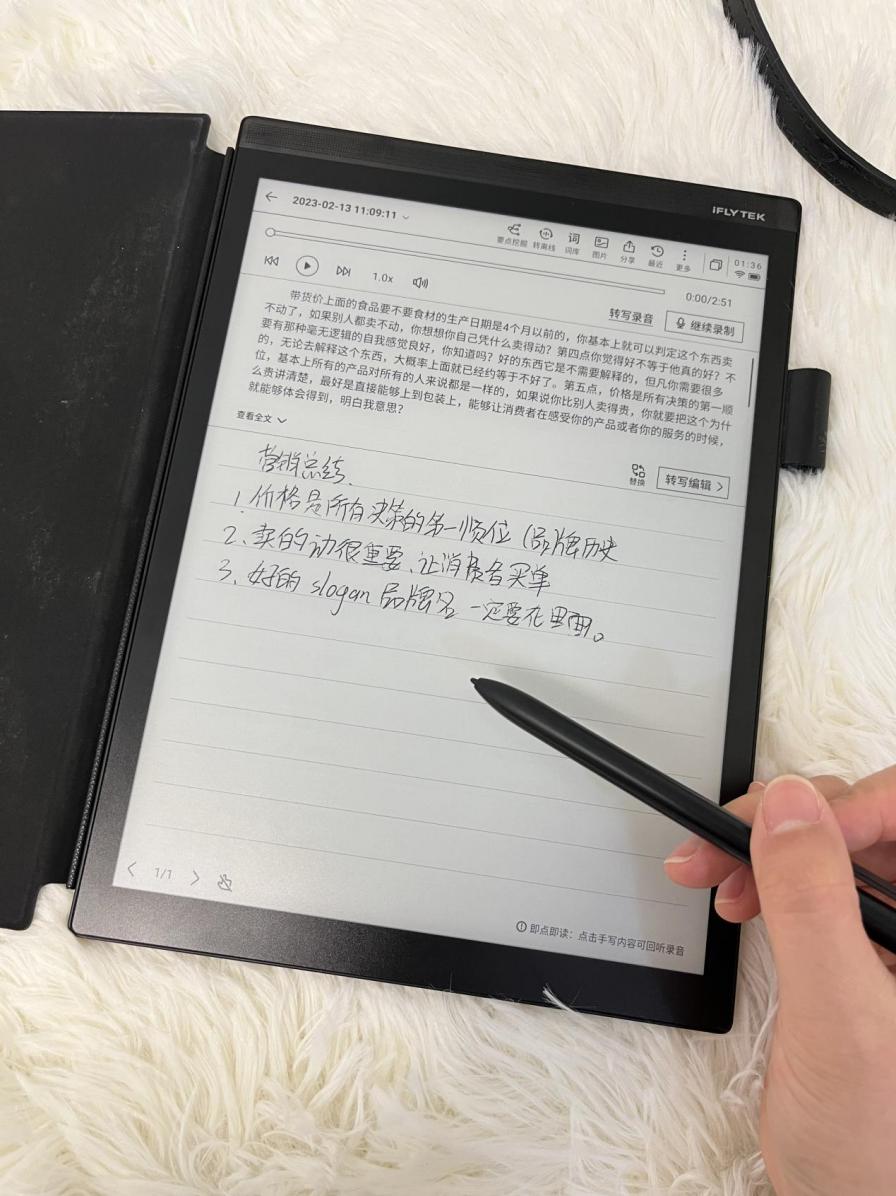 iFLYTEK
2023-02-13 11:09:11
要点挖掘 转离线 词库 图片 分享 最近 更多
01:36
1.0x
0:00/2:51
转写录音 继续录制
带货价上面的食品要不要食材的生产日期是4个月以前的，你基本上就可以判定这个东西卖
不动了，如果别人都卖不动，你想想你自己凭什么卖得动？第四点你觉得好不等于他真的好？不
要有那种毫无逻辑的自我感觉良好，你知道吗？好的东西它是不需要解释的，但凡你需要很多
的，无论去解释这个东西，大概率上面就已经约等于不好了。第五点，价格是所有决策的第一顺
位，基本上所有的产品对所有的人来说都是一样的，如果说你比别人卖得贵，你就要把这个为什
么贵讲清楚，最好是直接能够上到包装上，能够让消费者在感受你的产品或者你的服务的时候，
就能够体会得到，明白我意思？
查看全文
替换 转写编辑
营销总结
1.价格是所有决策的第一顺位（品牌历史
2、卖的动很重要、让消费者买单
3、好的slogan品牌名一定要在里面。
1/1
即点即读：点击手写内容可回听录音